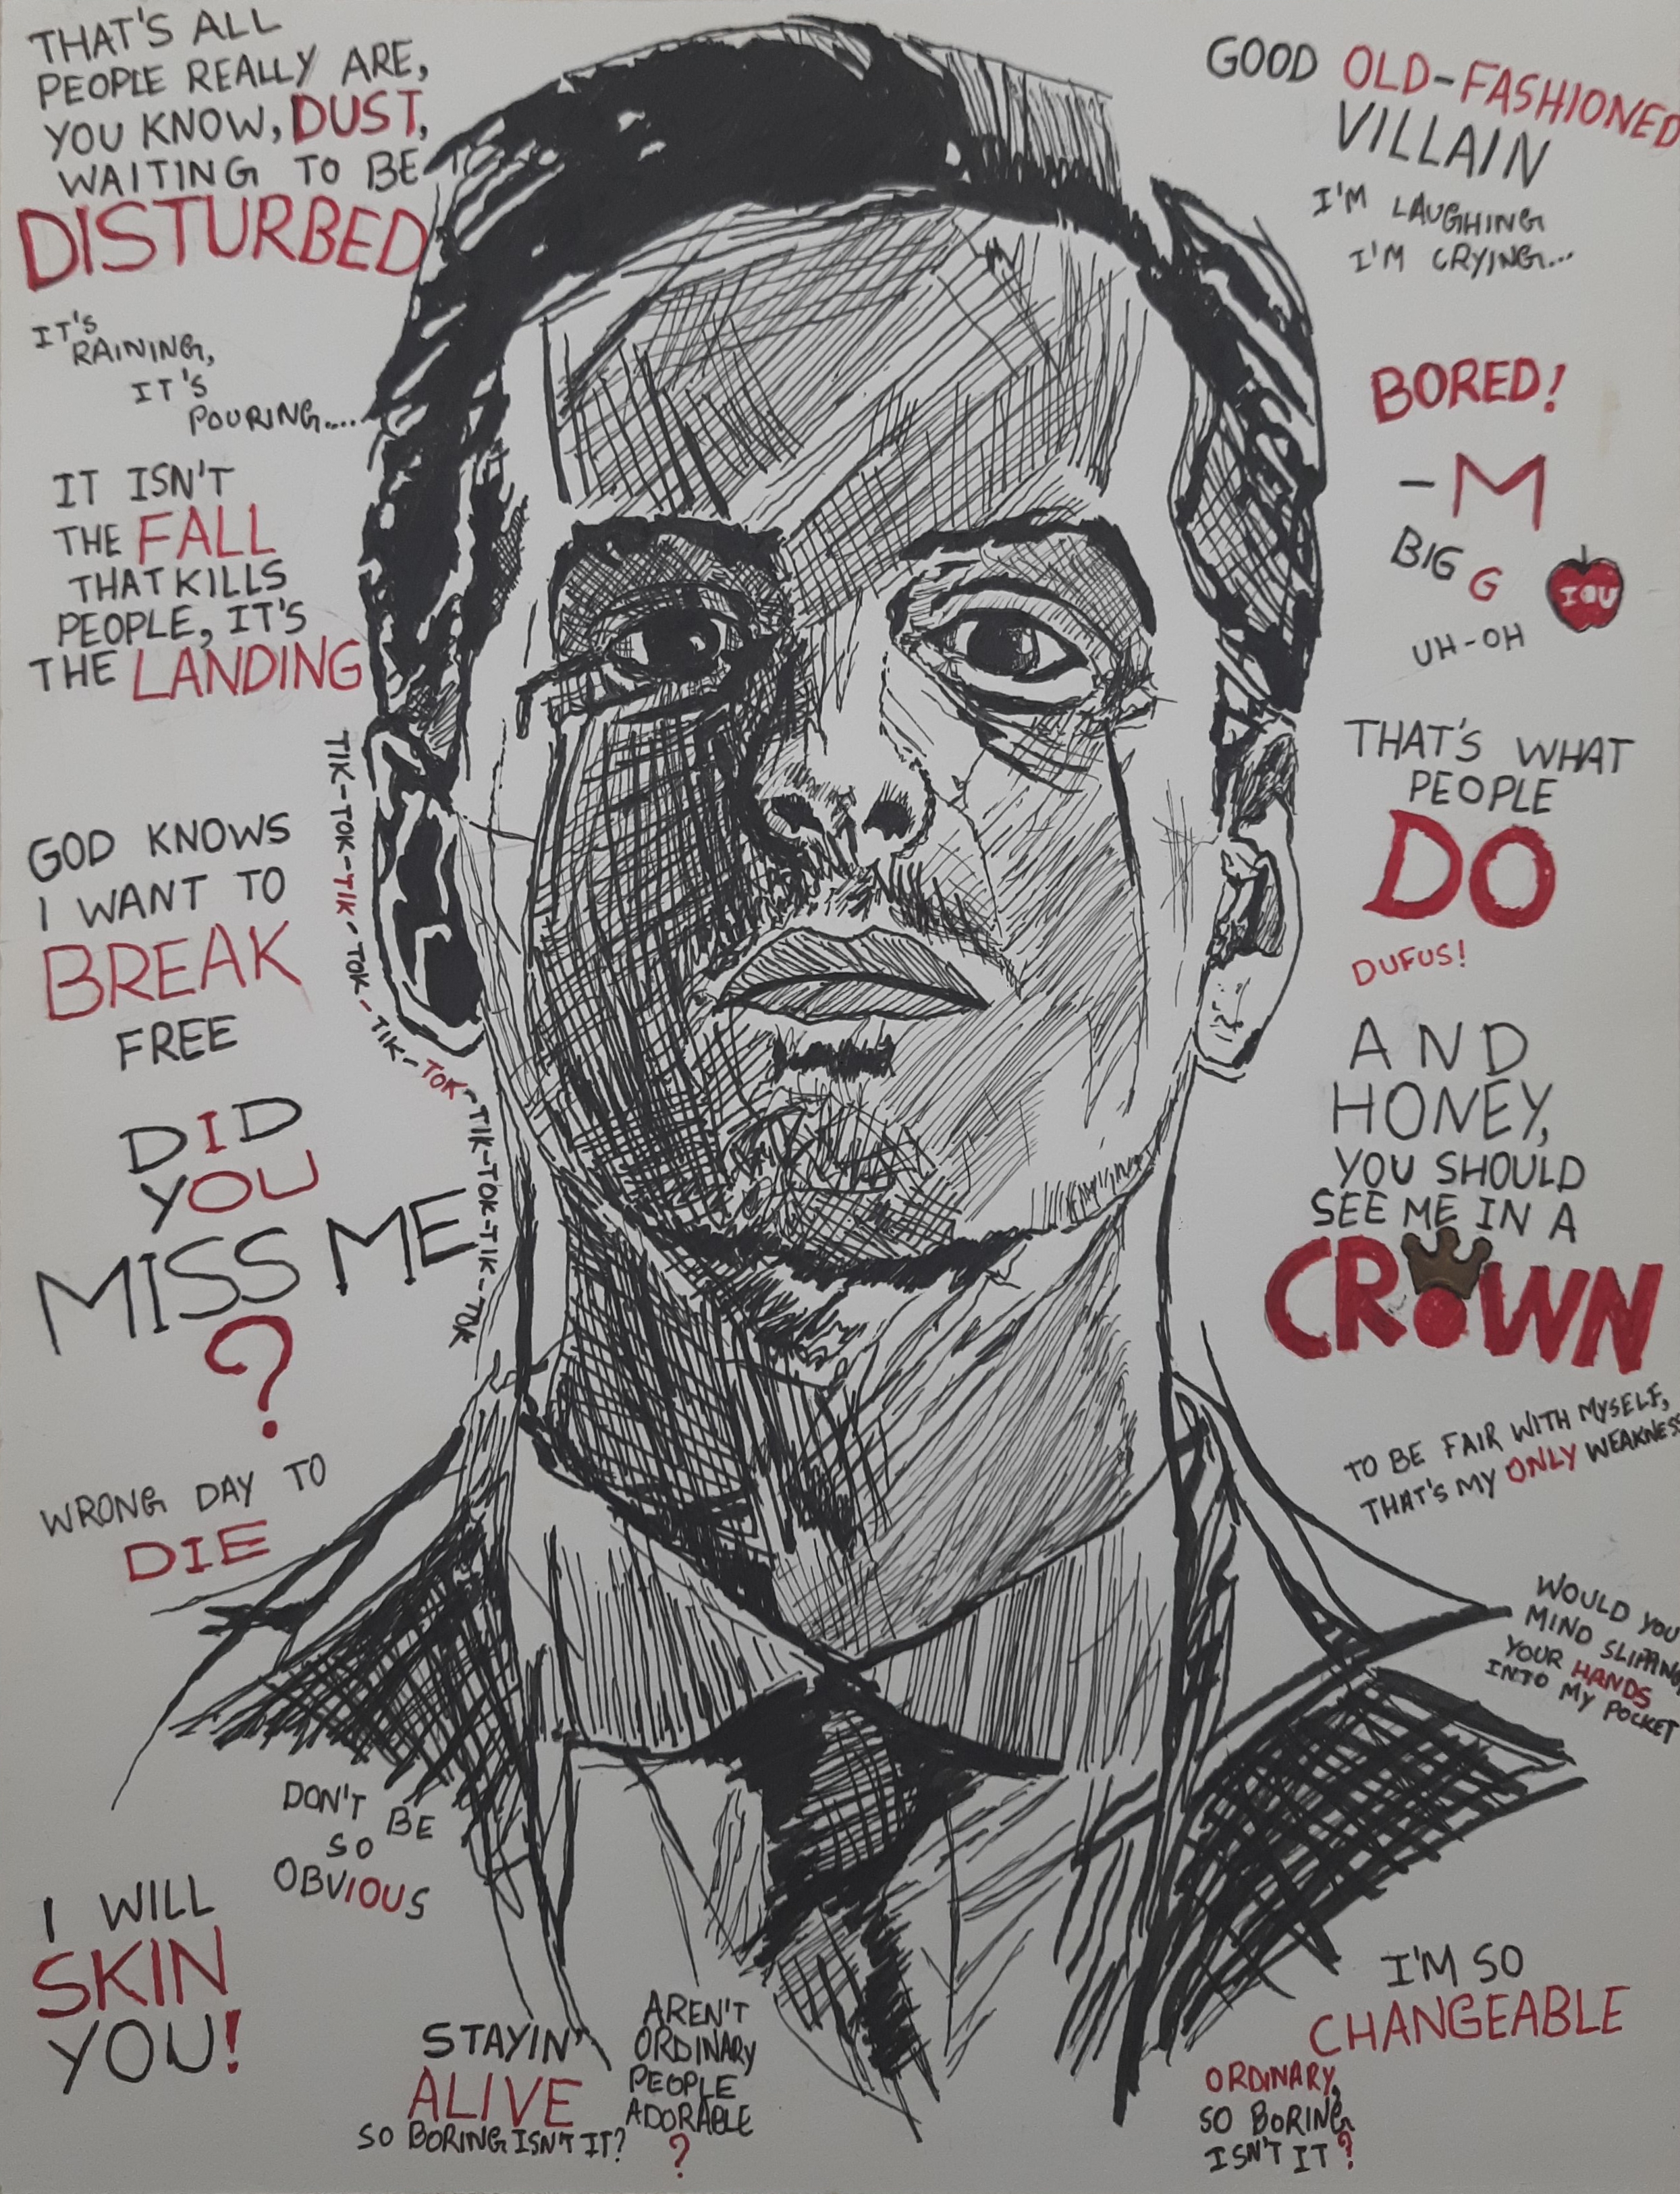 THAT'S ALL
PEOPLE REALLY ARE,
YOU KNOW, DUST,
WAITING TO BE
DISTURBED
IT'S
RAINING,
IT'S
POURING....
IT ISN'T
THE FALL
THAT KILLS
PEOPLE, IT'S
THE LANDING
TIK-TOK-TIK-TOK-TIK-TOK-TIK-TOK-TIK-TOK
GOD KNOWS
I WANT TO
BREAK
FREE
DID
YOU
MISS ME
?
WRONG DAY TO
DIE
DON'T BE
SO
OBVIOUS
I WILL
SKIN
YOU!
STAYIN'
ALIVE
SO BORING ISN'T IT?
AREN'T
ORDINARY
PEOPLE
ADORABLE
?
GOOD OLD-FASHIONED
VILLAIN
I'M LAUGHING
I'M CRYING...
BORED!
-M
BIG G
IOU
UH-OH
THAT'S WHAT
PEOPLE
DO
DUFUS!
AND
HONEY,
YOU SHOULD
SEE ME IN A
CROWN
TO BE FAIR WITH MYSELF,
THAT'S MY ONLY WEAKNESS
WOULD YOU
MIND SLIPPING
YOUR HANDS
INTO MY POCKET
I'M SO
CHANGEABLE
ORDINARY,
SO BORING
ISN'T IT?